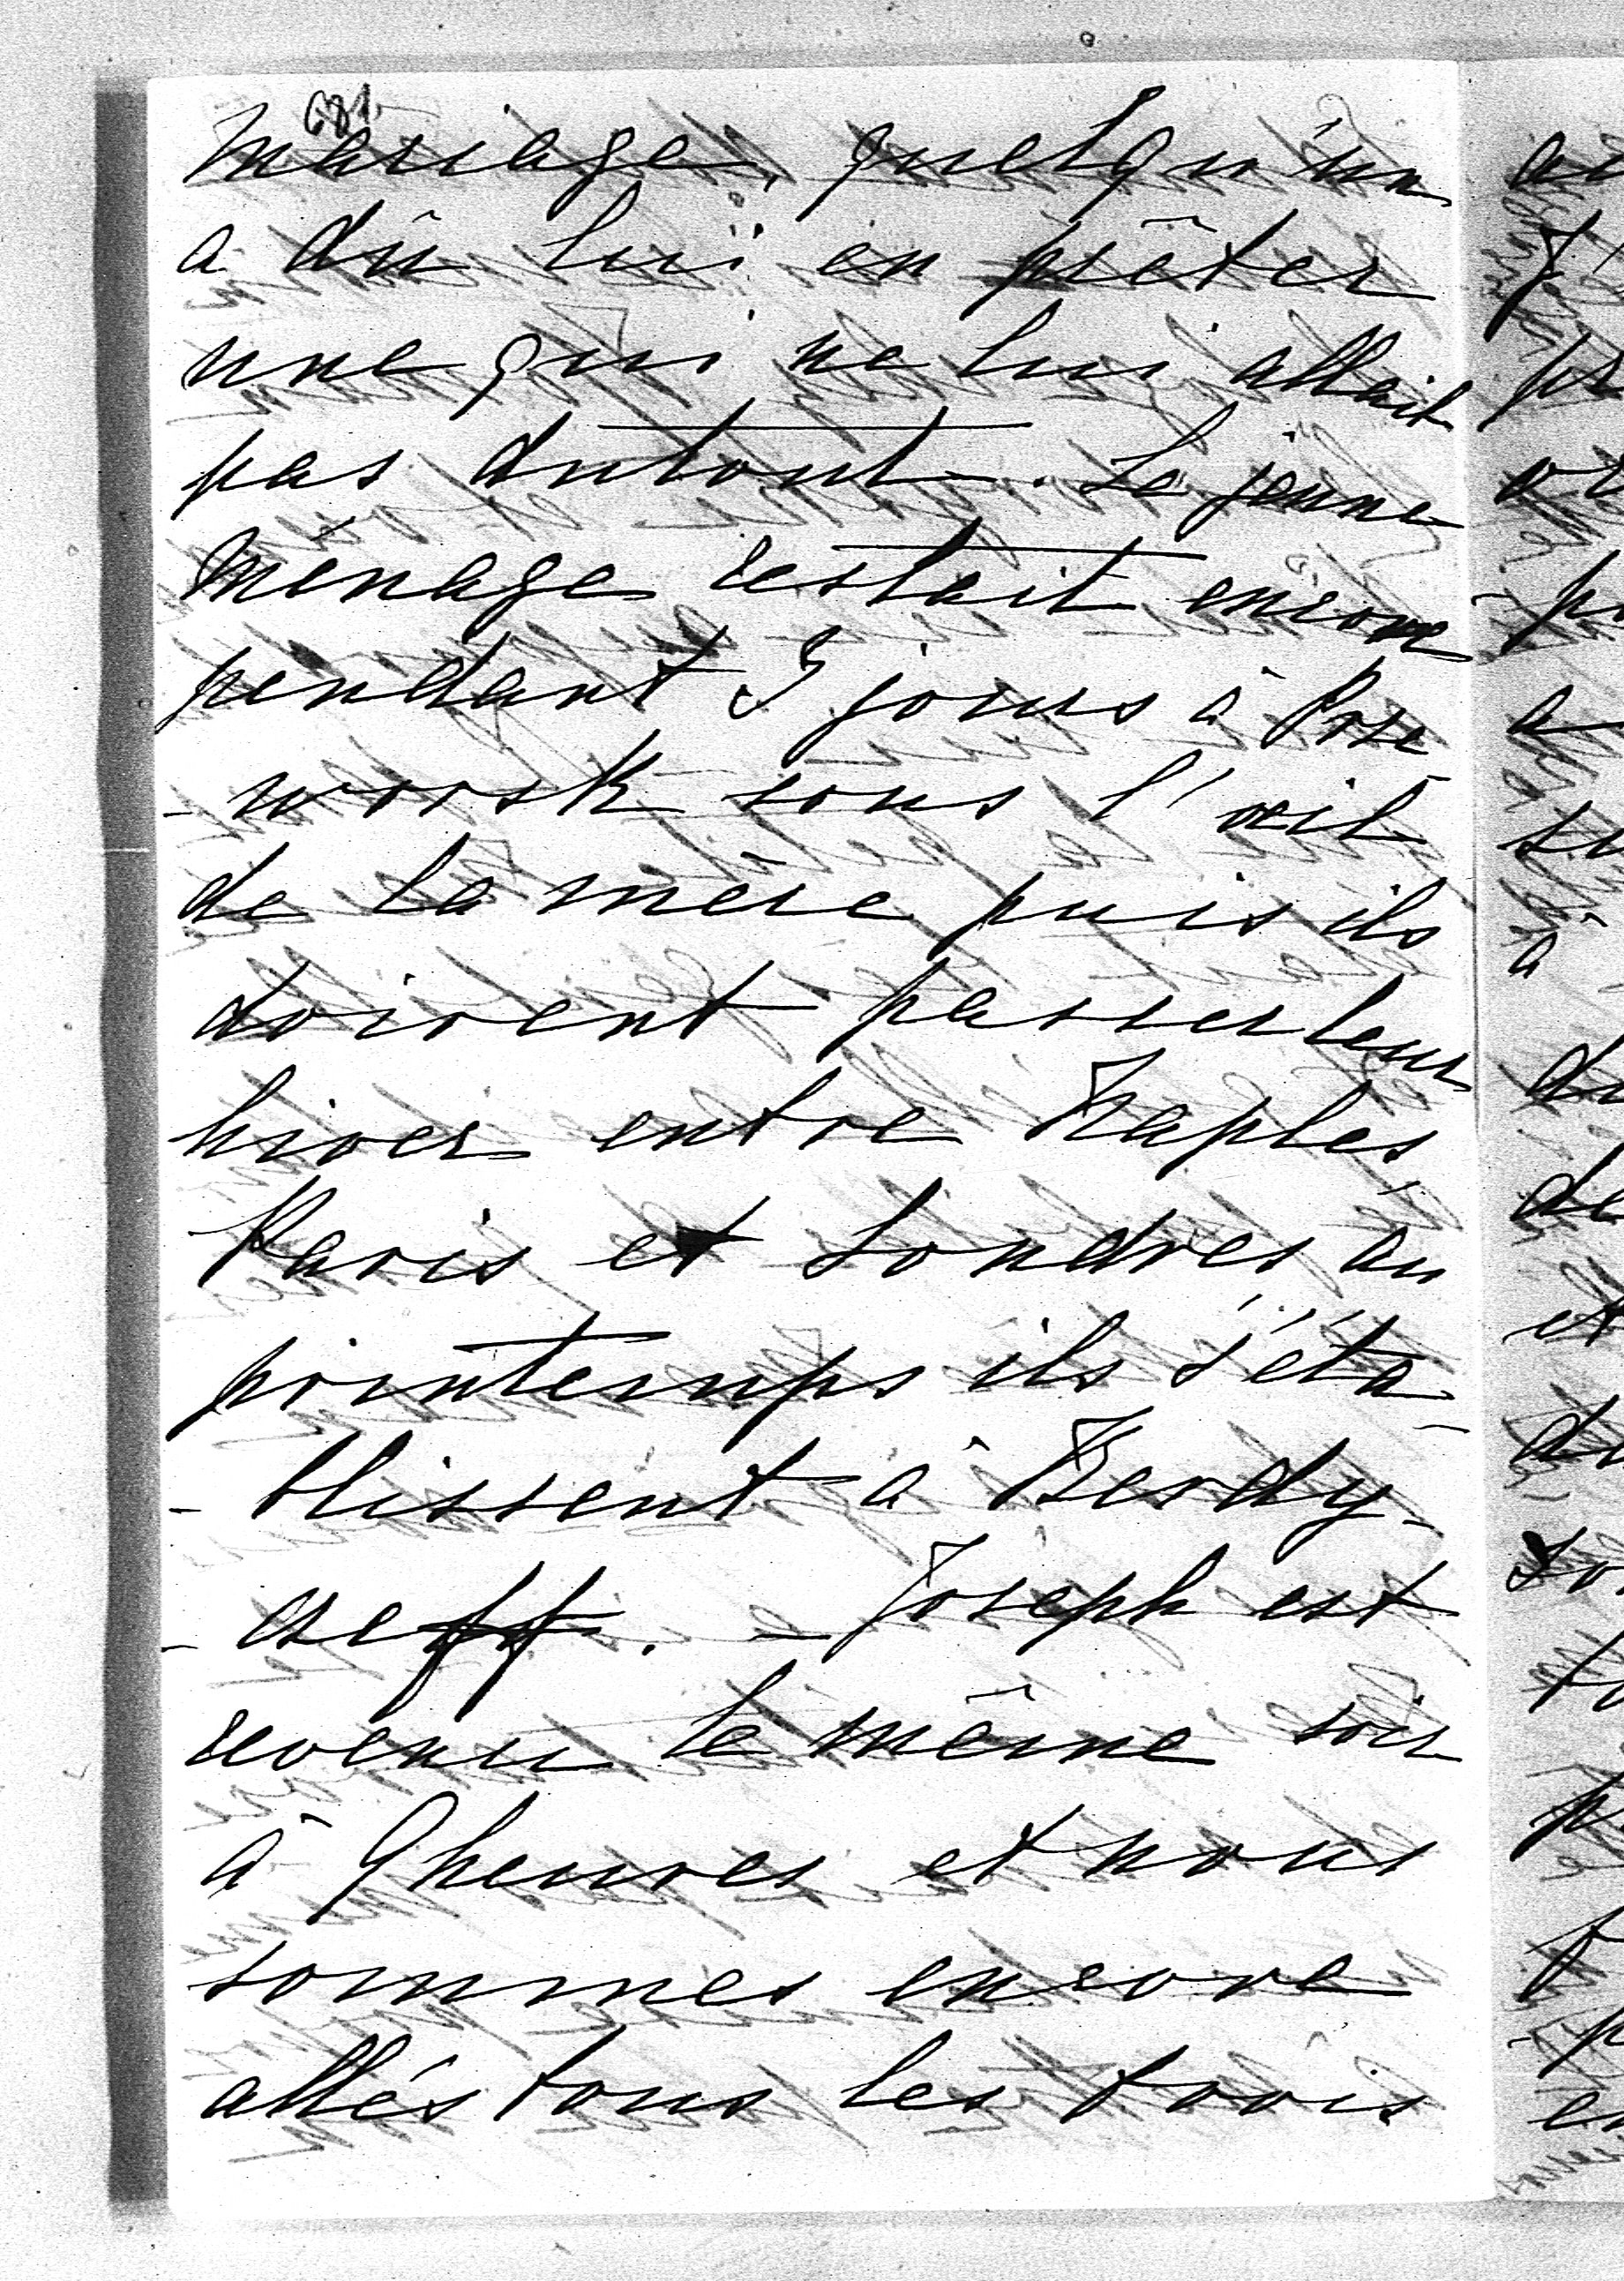 681.
mariage, quelqu'un
a dû lui en prêter
une qui ne lui allait
pas dutout. Le jeune
ménage restait encore
pendant 3 jours à Prze
-worsk sous l'œil
de la mère puis ils
doivent passer leur
hiver entre Naples,
Paris et Londres au
printemps ils s'éta-
-blissent à Berdy-
. — Joseph est
revenu le même soir
à 9 heures et nous
sommes encore
allés tous les trois